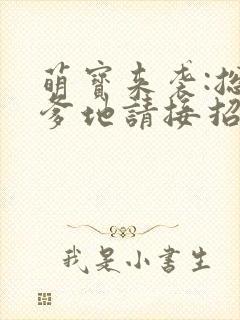 萌寶來袭:總
爹地請接招
我是小書生